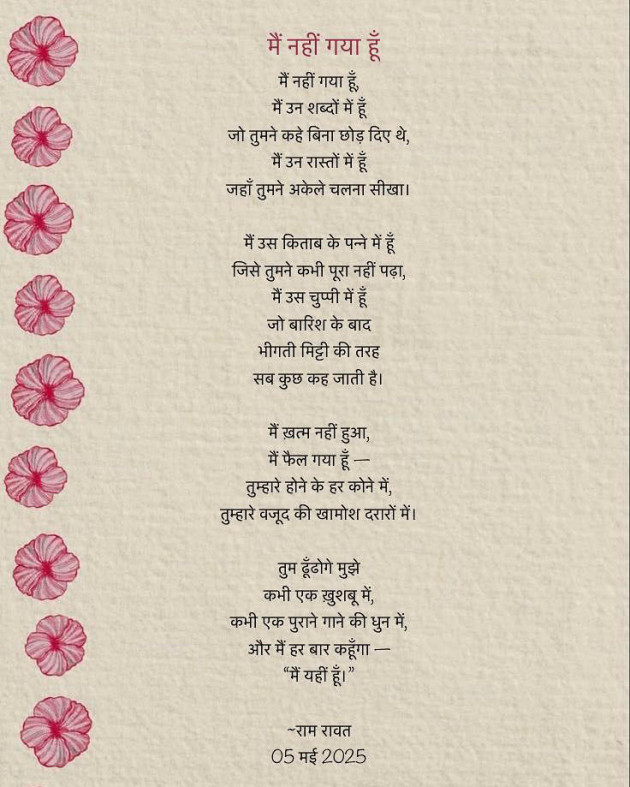 मैं नहीं गया हूँ
मैं नहीं गया हूँ,
मैं उन शब्दों में हूँ
जो तुमने कहे बिना छोड़ दिए थे,
मैं उन रास्तों में हूँ
जहाँ तुमने अकेले चलना सीखा।
मैं उस किताब के पन्ने में हूँ
जिसे तुमने कभी पूरा नहीं पढ़ा,
मैं उस चुप्पी में हूँ
जो बारिश के बाद
भीगती मिट्टी की तरह
सब कुछ कह जाती है।
मैं ख़त्म नहीं हुआ,
मैं फैल गया हूँ —
तुम्हारे होने के हर कोने में,
तुम्हारे वजूद की खामोश दरारों में।
तुम ढूँढोगे मुझे
कभी एक ख़ुशबू में,
कभी एक पुराने गाने की धुन में,
और मैं हर बार कहूँगा —
“मैं यहीं हूँ।”
~राम रावत
05 मई 2025